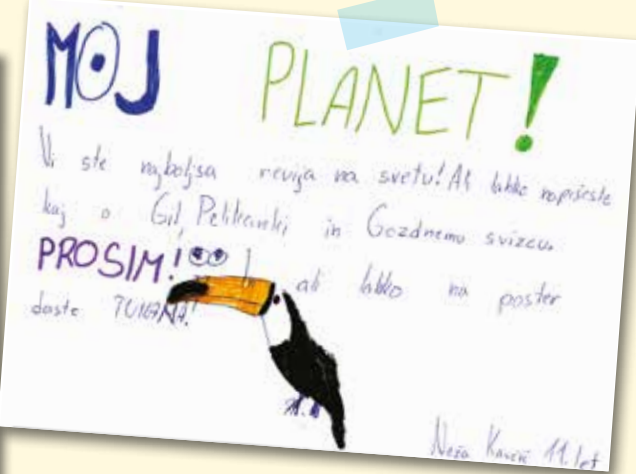 MOJ PLANET!
Vi ste najboljša revija na svetu! Ali lahko napišete
kaj o Gili, in Gozdnemu svizcu.
PROSIM!
ali lahko na poster
daste TUKANA!
Neža 11. let